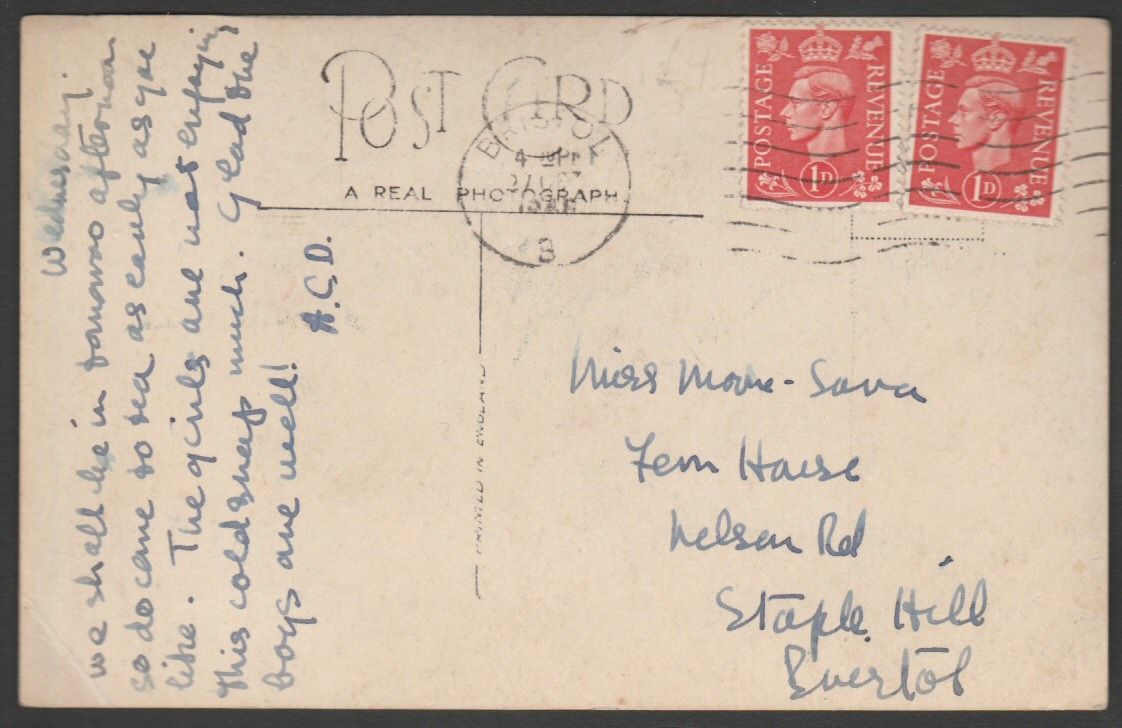 Wednesday.
we shall be in tomorrow afternoon
so do come to tea as early as you
like. The girls are not enjoying
this cold snap much. Glad the
boys are well!
A.G.D.
POST CARD
A REAL PHOTOGRAPH
BRISTOL
4
PM
B
POSTAGE REVENUE
1D
POSTAGE REVENUE
1D
PRINTED IN ENGLAND
Miss Moore-Sava
Fern House
Nelson Rd
Staple Hill
Bristol